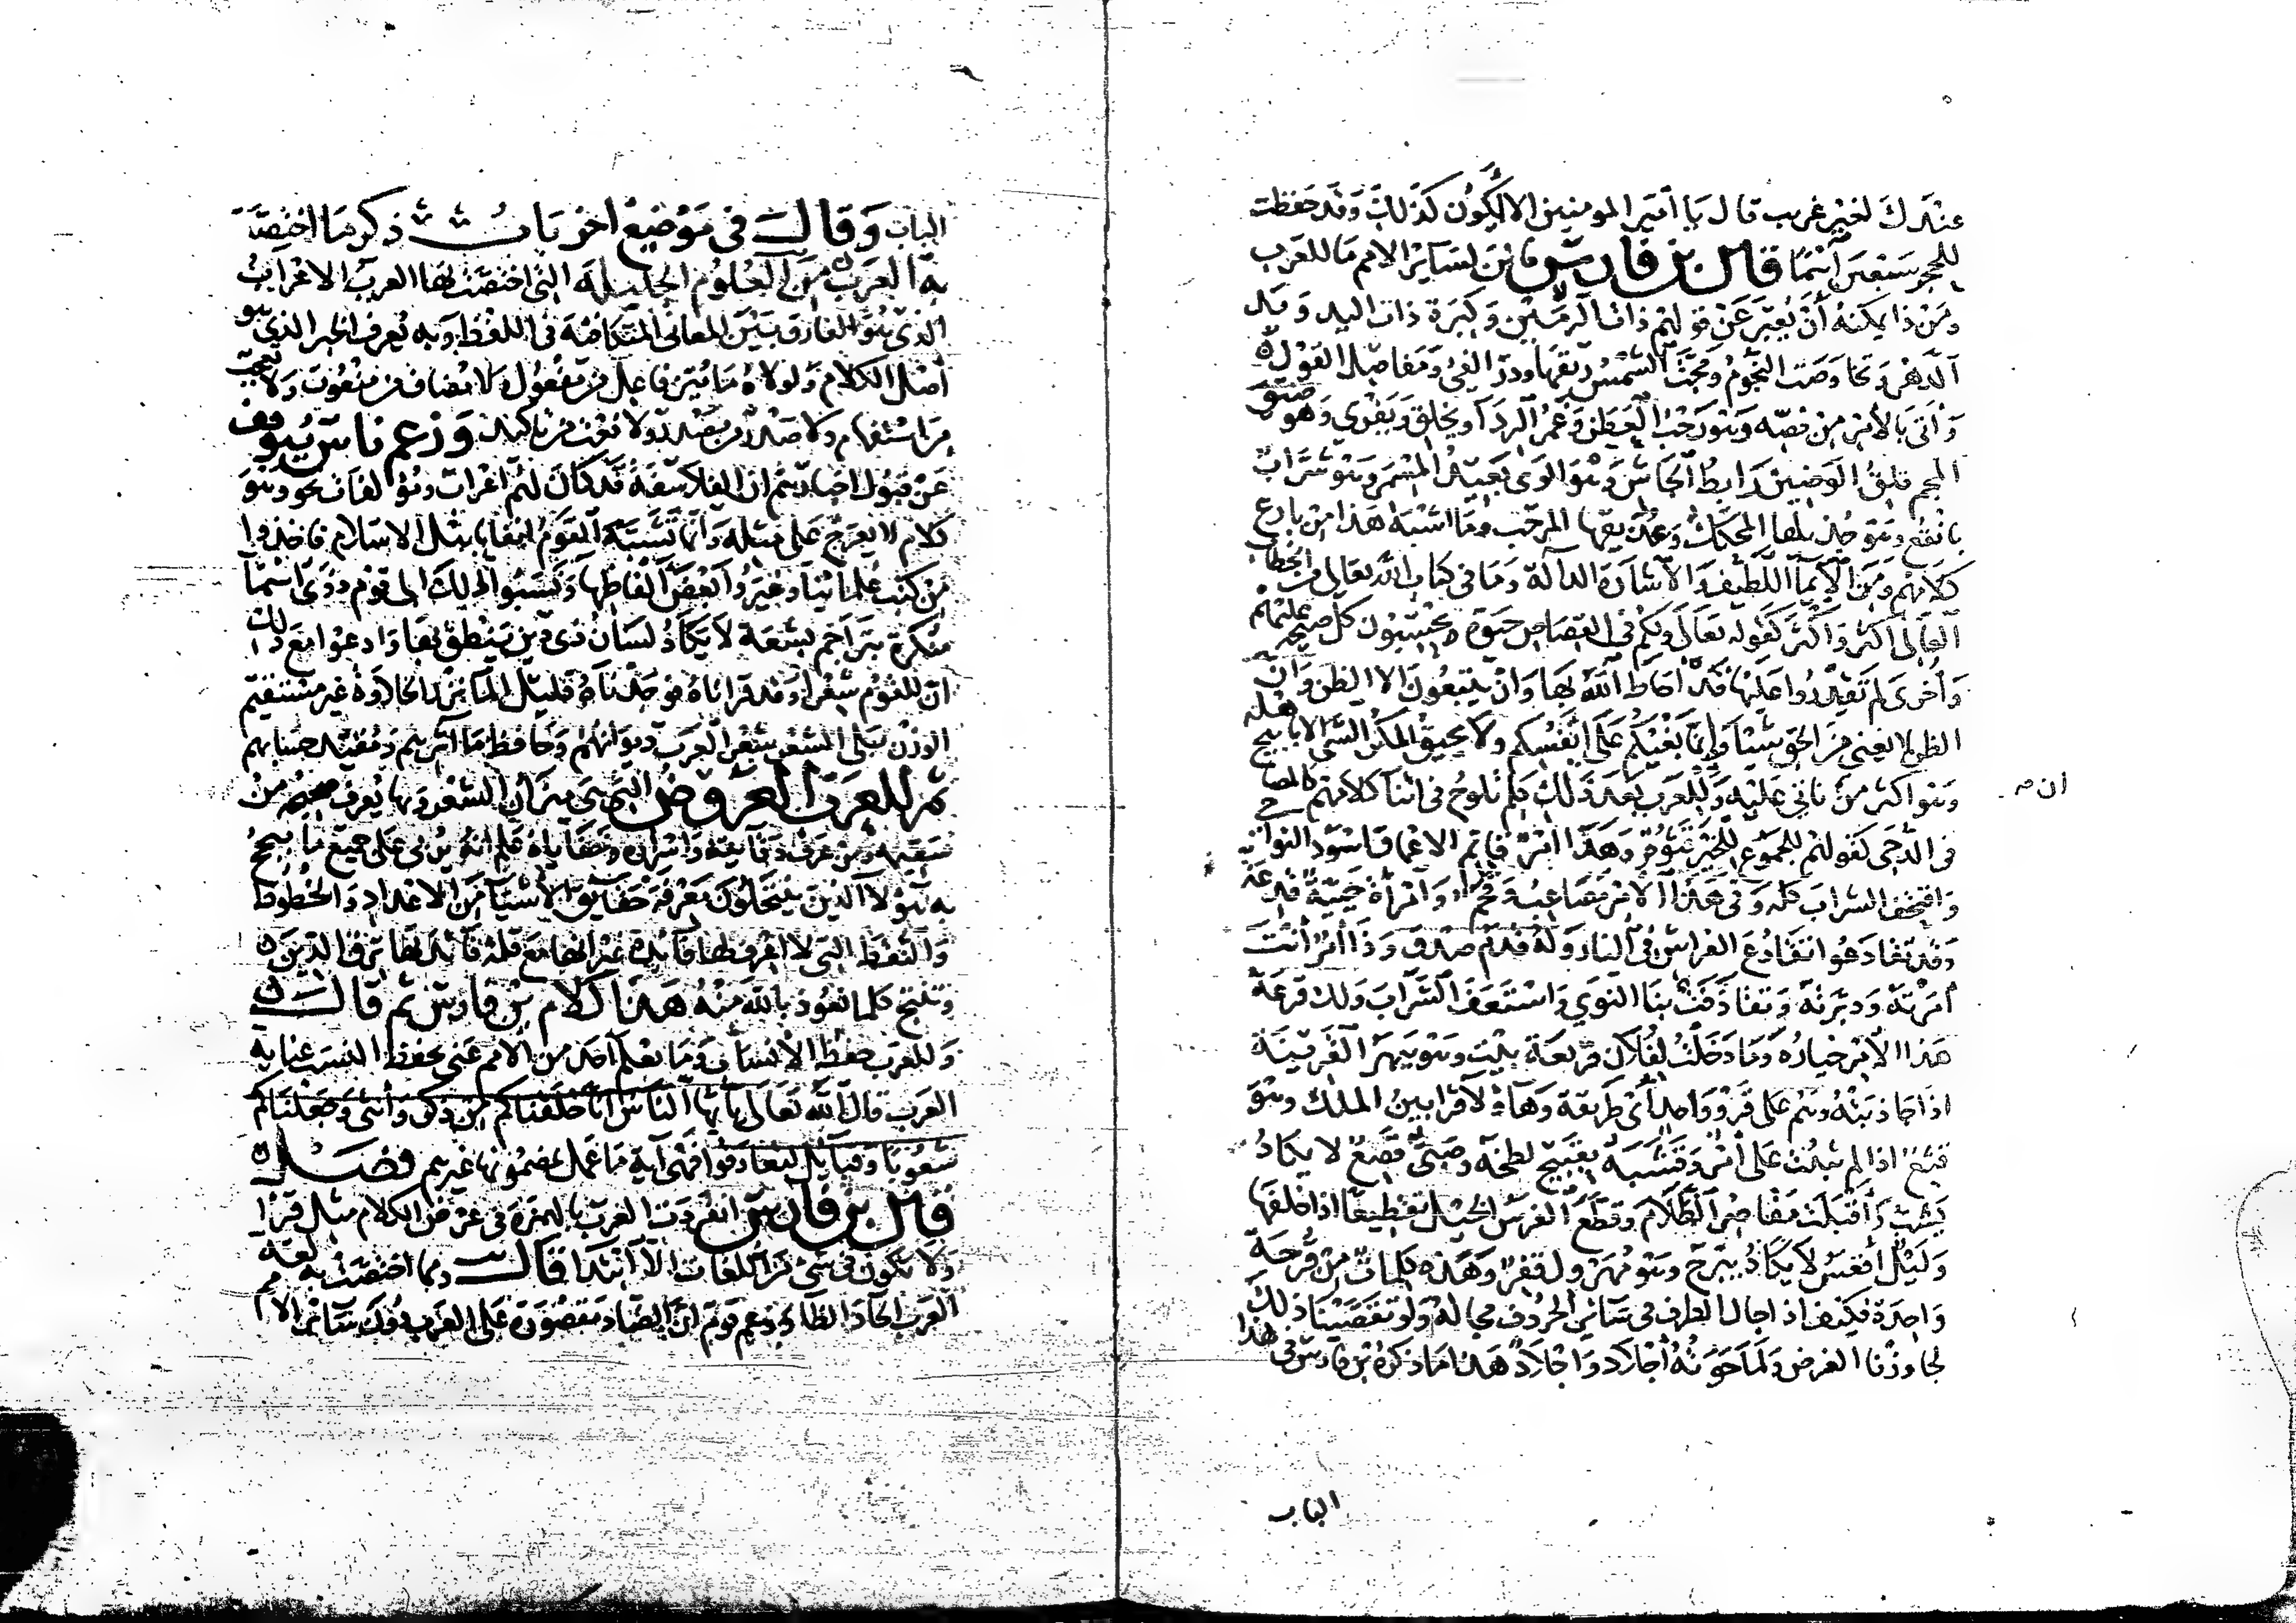 عندك لغير غريب قال يا أمير المومنين الا يكون كذلك وقد حفظت
للحجر سبعين اسما قال بن فارس فاين لسائر الامم ما للعرب
ومن ذا يمكنه أن يعبر عن قولهم ذات الزمين وكثرة ذات اليد ويد
الدهر وتخاوصت النجوم ومجت الشمس ريقها ودر الفئ ومفاصل القول
وأتى بالأمر من فصه وهو رحب العطن وغمر الردآ ويخلق ويفري وهو ضيق
المجم قلق الوضين رابط الجاش وهو الوى بعيد المستمر وهو شراب
بانقع وهو جذيلها المحكك وعذيقها المرجب وما اشبه هذا من بارع
كلامهم ومن الايمآ اللطيف والاشارة الدالة وما في كتاب الله تعالى من الخطاب
العالى أكثر وأكثر كقوله تعالى ولكم في القصاص حيوة ويحسبون كل صيحة عليهم
وأخرى لم تقدروا عليها قد أحاط الله بها وان يتبعون الا الظن وان
الظن لا يغني من الحق شيئا وإنما بغيكم على انفسكم ولا يحيق المكر السئ الا باهله
وهو اكثر من ناتي عليه وللعرب بعد ذلك كلم تلوح في اثنآ كلامهم كالمصابيح
ان م
في الدجى كقولهم للجموع للخير قثوم وهذا امر قاتم الاعماق اسود النواحي
واقتحف الشراب كله وفي هذا الامر مصاعب وقحم وامرأة حيية قدعة
وقد تقادعوا تقادع الفراش في النار وله قدم صدق وذا أمر أنت
أمرته ودبرته وتقاذفت بنا النوي واستعف الشراب ولك قرعة
هذا الأمر خياره وما دخلت لفلان قريعة بيت وهو يبهر القرينة
اذا جاذبته وهم على قرو واحد أي طريقة وهآولآ قرابين الملك وهو
قشع اذا لم يثبت على أمر وقشبه بقبيح لطخه وصبى قصع لا يكاد
يشب وأقبلت مقاصر الظلام وقطع الفرس الخيل تقطيعا اذا خلفها
وليل أقعس لا يكاد يبرح وهو منزول قفر وهذه كلمات من قرحة
واحدة فكيف اذ اجال الطرف في سائر الحروف مجاله ولو تقصينا ذلك
لجاوزنا الغرض ولما حوته أجلاد واجلاد هذا ما ذكره بن فارس في هذا
الباب
الباب وقال في موضع اخر باب ذكر ما اختصت
به العرب من العلوم الجليلة التي اختصت بها العرب الاعراب
الذي هو الفارق بين المعاني المتكافئة في اللفظ وبه يعرف الخبر الذي هو
أصل الكلام ولولاه ما ميز فاعل من مفعول ولا مضاف من منعوت ولا تعجب
من استفهام ولا صدر من مصدر ولا نعت من تاكيد وزعم ناس يتوقف
عن قبول اخبارهم ان الفلاسفة قد كان لهم اعراب ومؤلفات نحو وهو
كلام لا يعرج على مثله وانما تشبه القوم انفا بمثل الاسلام فاخذوا
من كتب علمائنا وغيروا بعض ألفاظها ونسبوا ذلك الى قوم ذوى اسمآ
منكرة بتراجم بشعة لا يكاد لسان ذى دين ينطق بها وادعوا مع ذلك
ان للقوم شعرا وقد قراناه فوجدناه قليل المآ نزر الحلاوة غير مستقيم
الوزن بلى الشعر شعر العرب ديوانهم وحافظ ماآثرهم ومقيد حسابهم
ثم للعرب العروض التي هي ميزان الشعر وبها يعرف صحيحه من
سقيمه ومن عرف دقايقه واسراره وخفاياه علم انه يربى على جميع ما يبجح
به هؤلآ الذين ينتحلون معرفة حقايق الأشيآ من الاعداد والخطوط
والنقط التي لا اعرف لها فآيدة غير انها مع قلة فآئدتها ترق الدين
وتنتج كلما نعوذ بالله منه هذا كلام بن فارس ثم قال
وللعرب حفظ الأنساب وما يعلم أحد من الامم عنى بحفظ النسب عناية
العرب قال الله تعالى يأيها الناس انا خلقناكم من ذكر وأنثى وجعلناكم
شعوبا وقبايل لتعارفوا فهى آية ما عمل بمضمونها غيرهم فصل
قال بن فارس انفردت العرب بالهمزة في عرض الكلام مثل قرا
ولا تكون في شى من اللغات الا ابتدا قال ومما اختصت به لغة
العرب الحآ والظآ وزعم قوم ان الضاد مقصورة على العرب دون سائر الامم